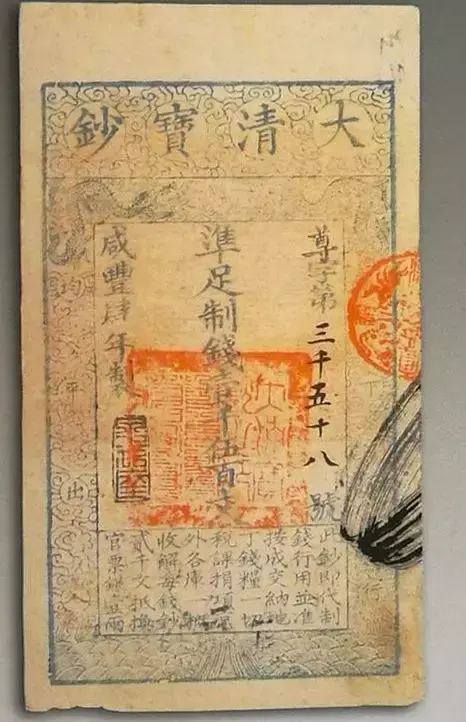 大清寶鈔
尊字第三千五十八號
準足制錢千伍百文
咸豐肆年製
此鈔即代制
錢行用並准
按成交納地
丁錢糧一切
稅課捐項京
外各庫一概
收解每錢鈔
貳千文抵換
官票銀壹兩
行
均平出入